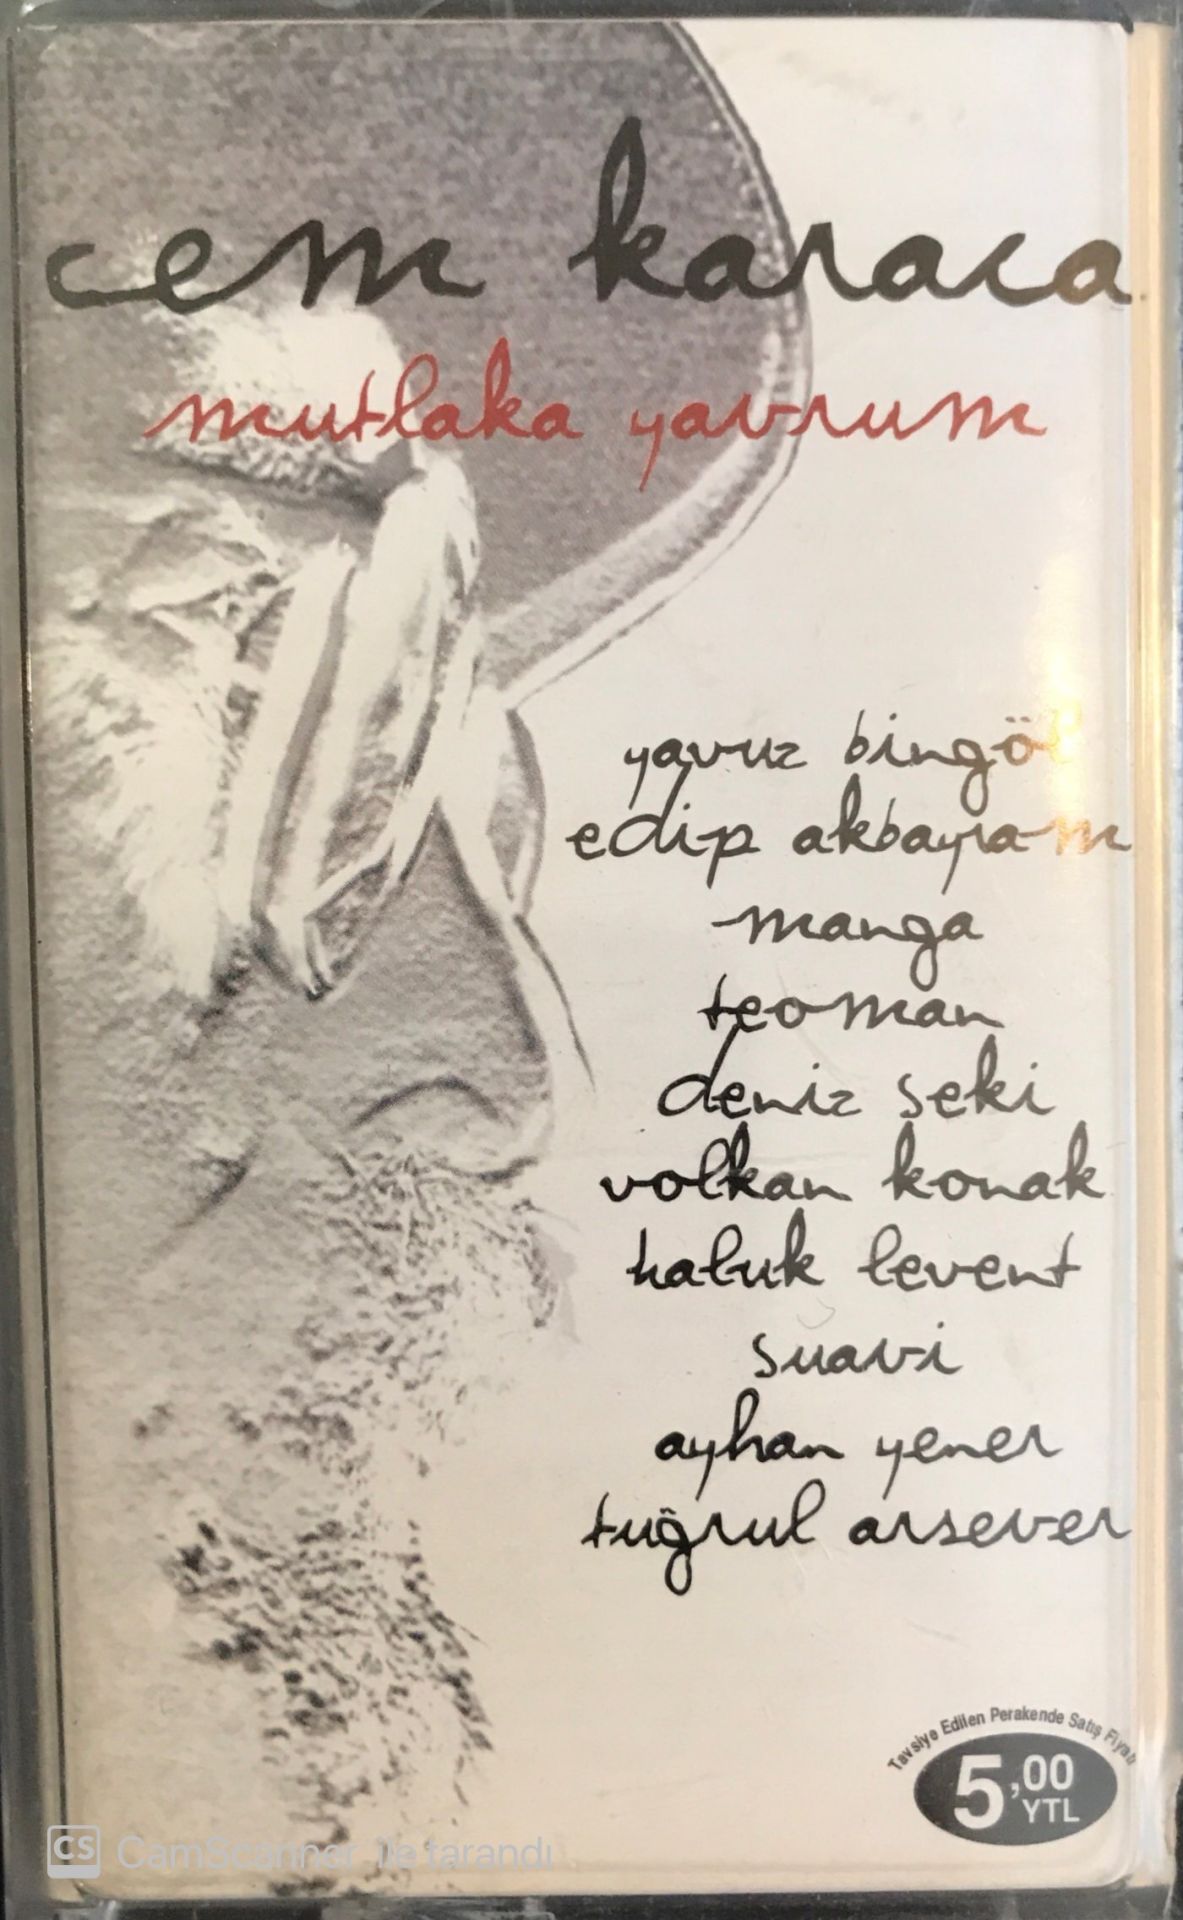 cem karaca
mutlaka yavrum
yavuz bingöl
edip akbayram
manga
teoman
deniz seki
volkan konak
haluk levent
suavi
ayhan yener
tuğrul arsever
Tavsiye Edilen Perakende Satış Fiyatı
5,00
YTL
CS CamScanner ile tarandı